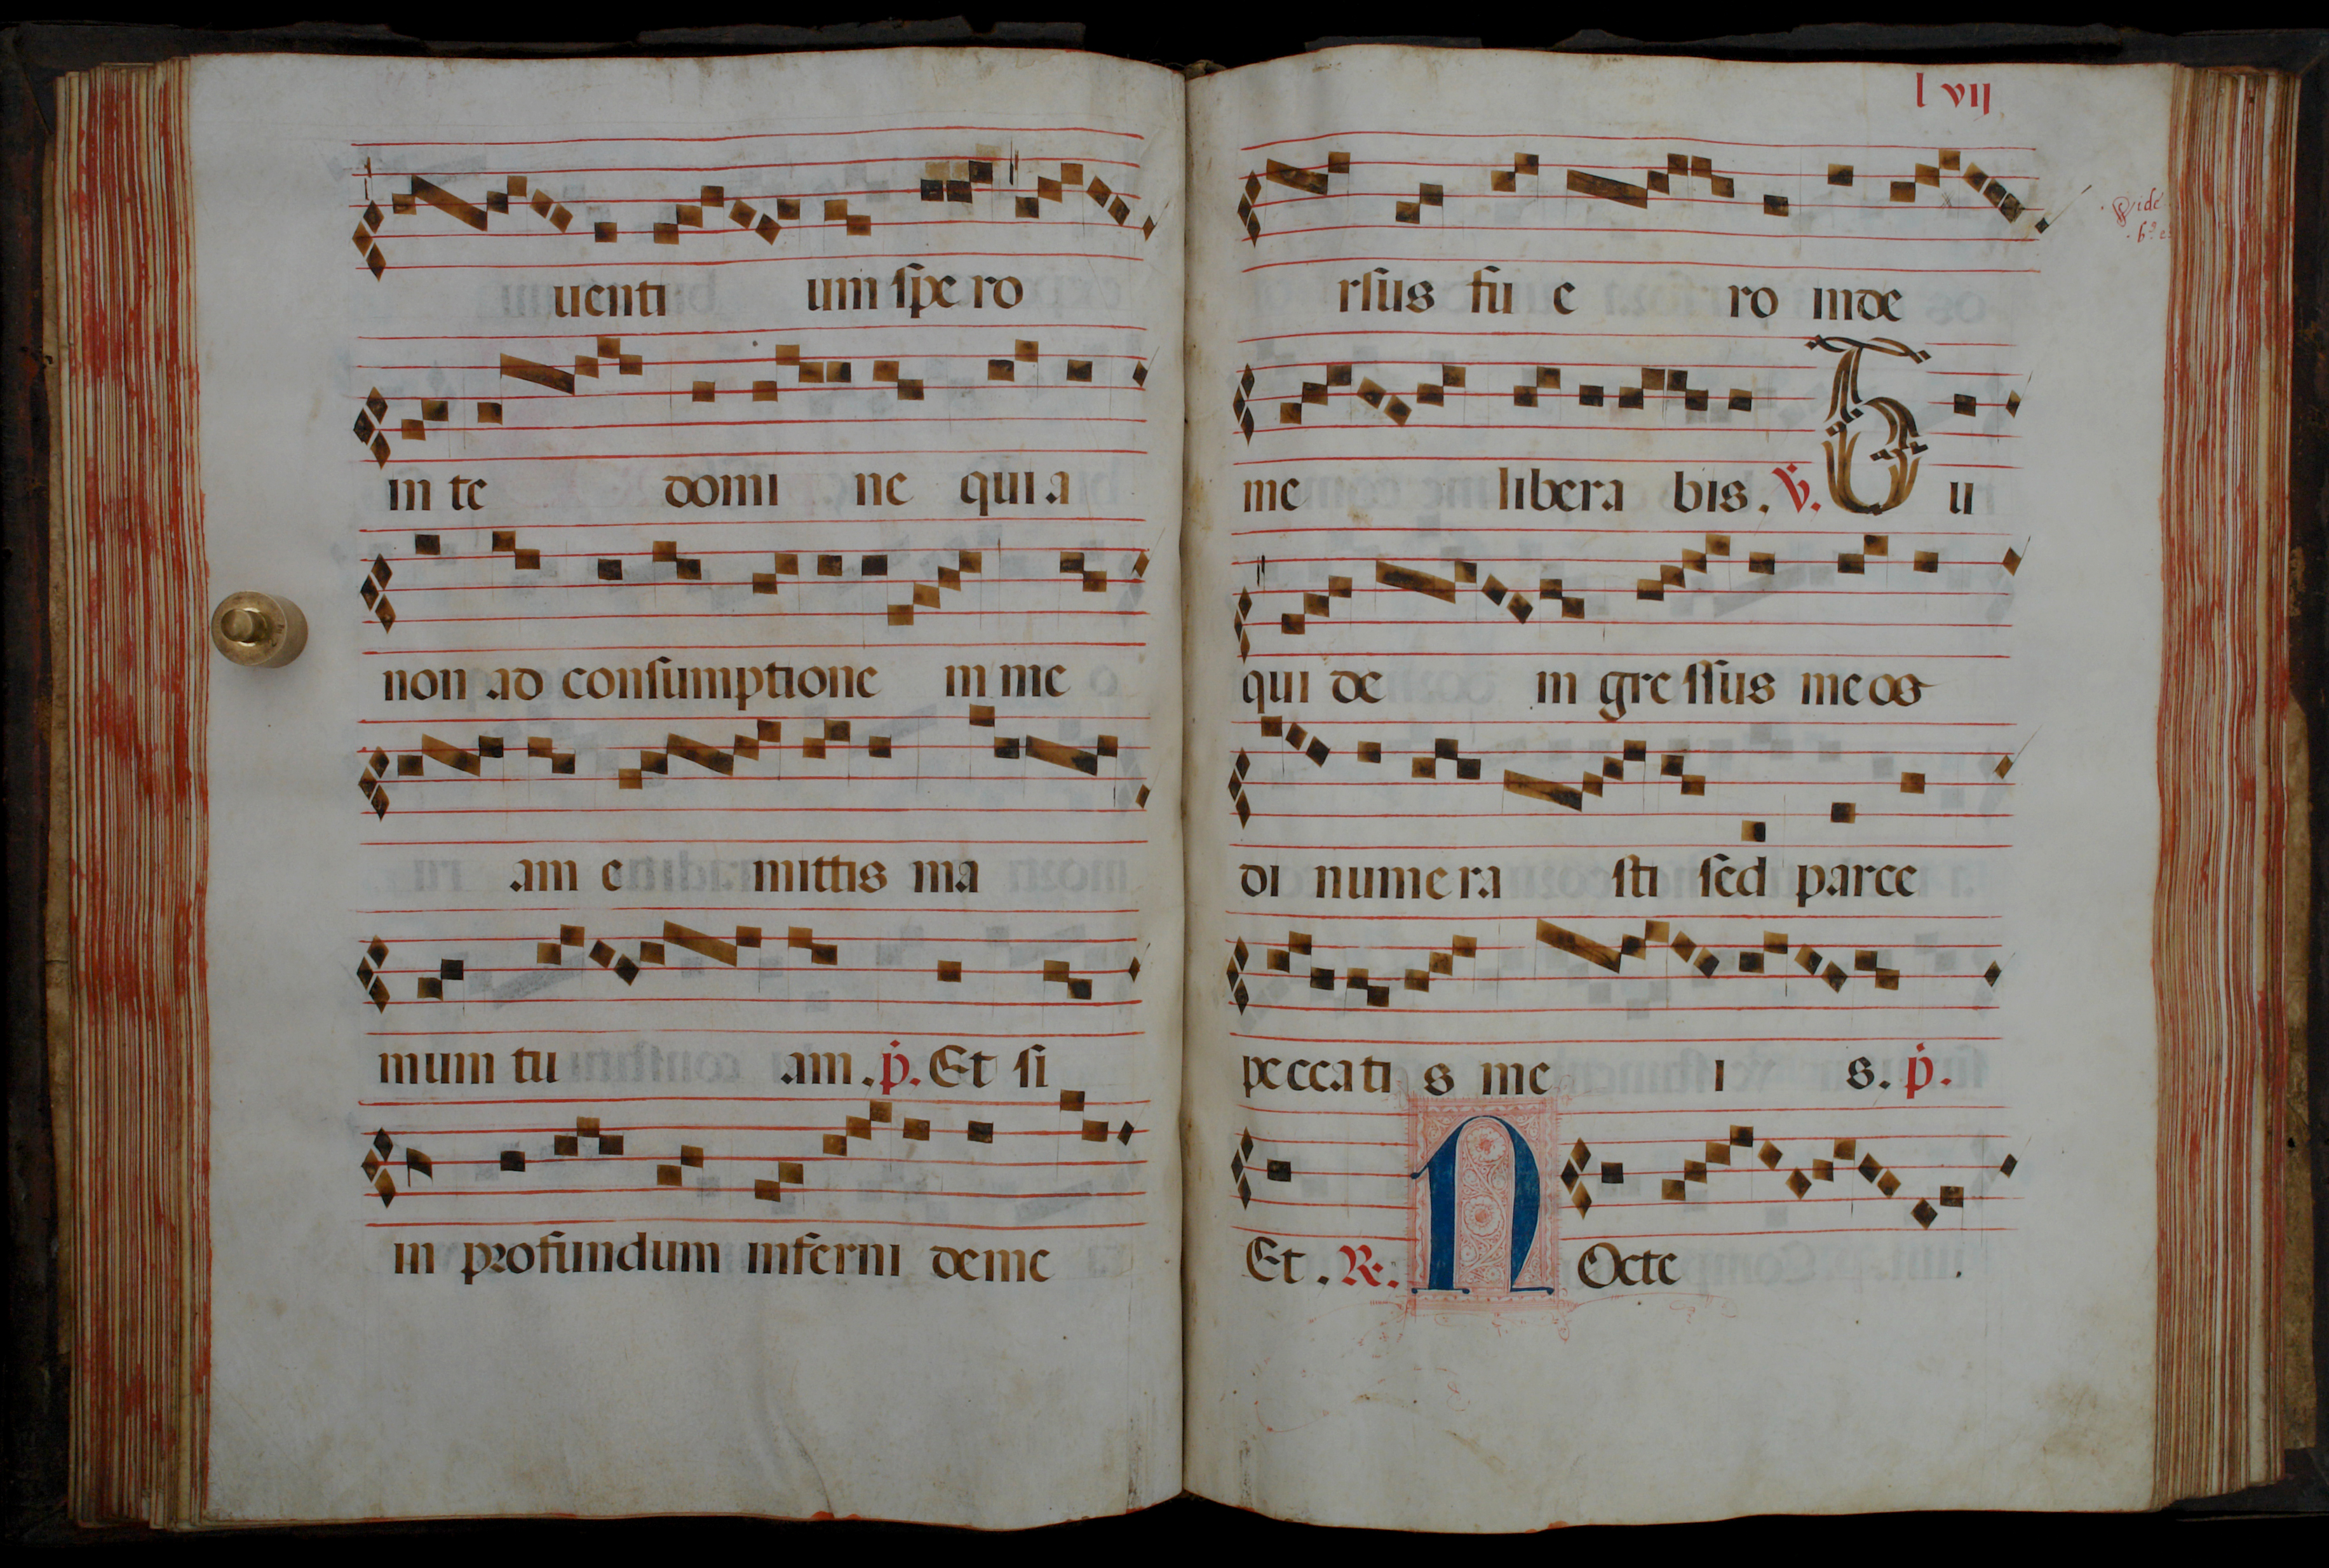 uenti um spe ro
in te domi ne quia
non ad consumptione in me
am e mittis ma
mum tu am. p. Et si
in profundum inferni deme
l vij
Vide
rsus fu e ro inde
me libera bis. V. Tu
qui de in gressus meos
di numera sti sed parce
peccati s me i s. p.
Et. R. NOcte